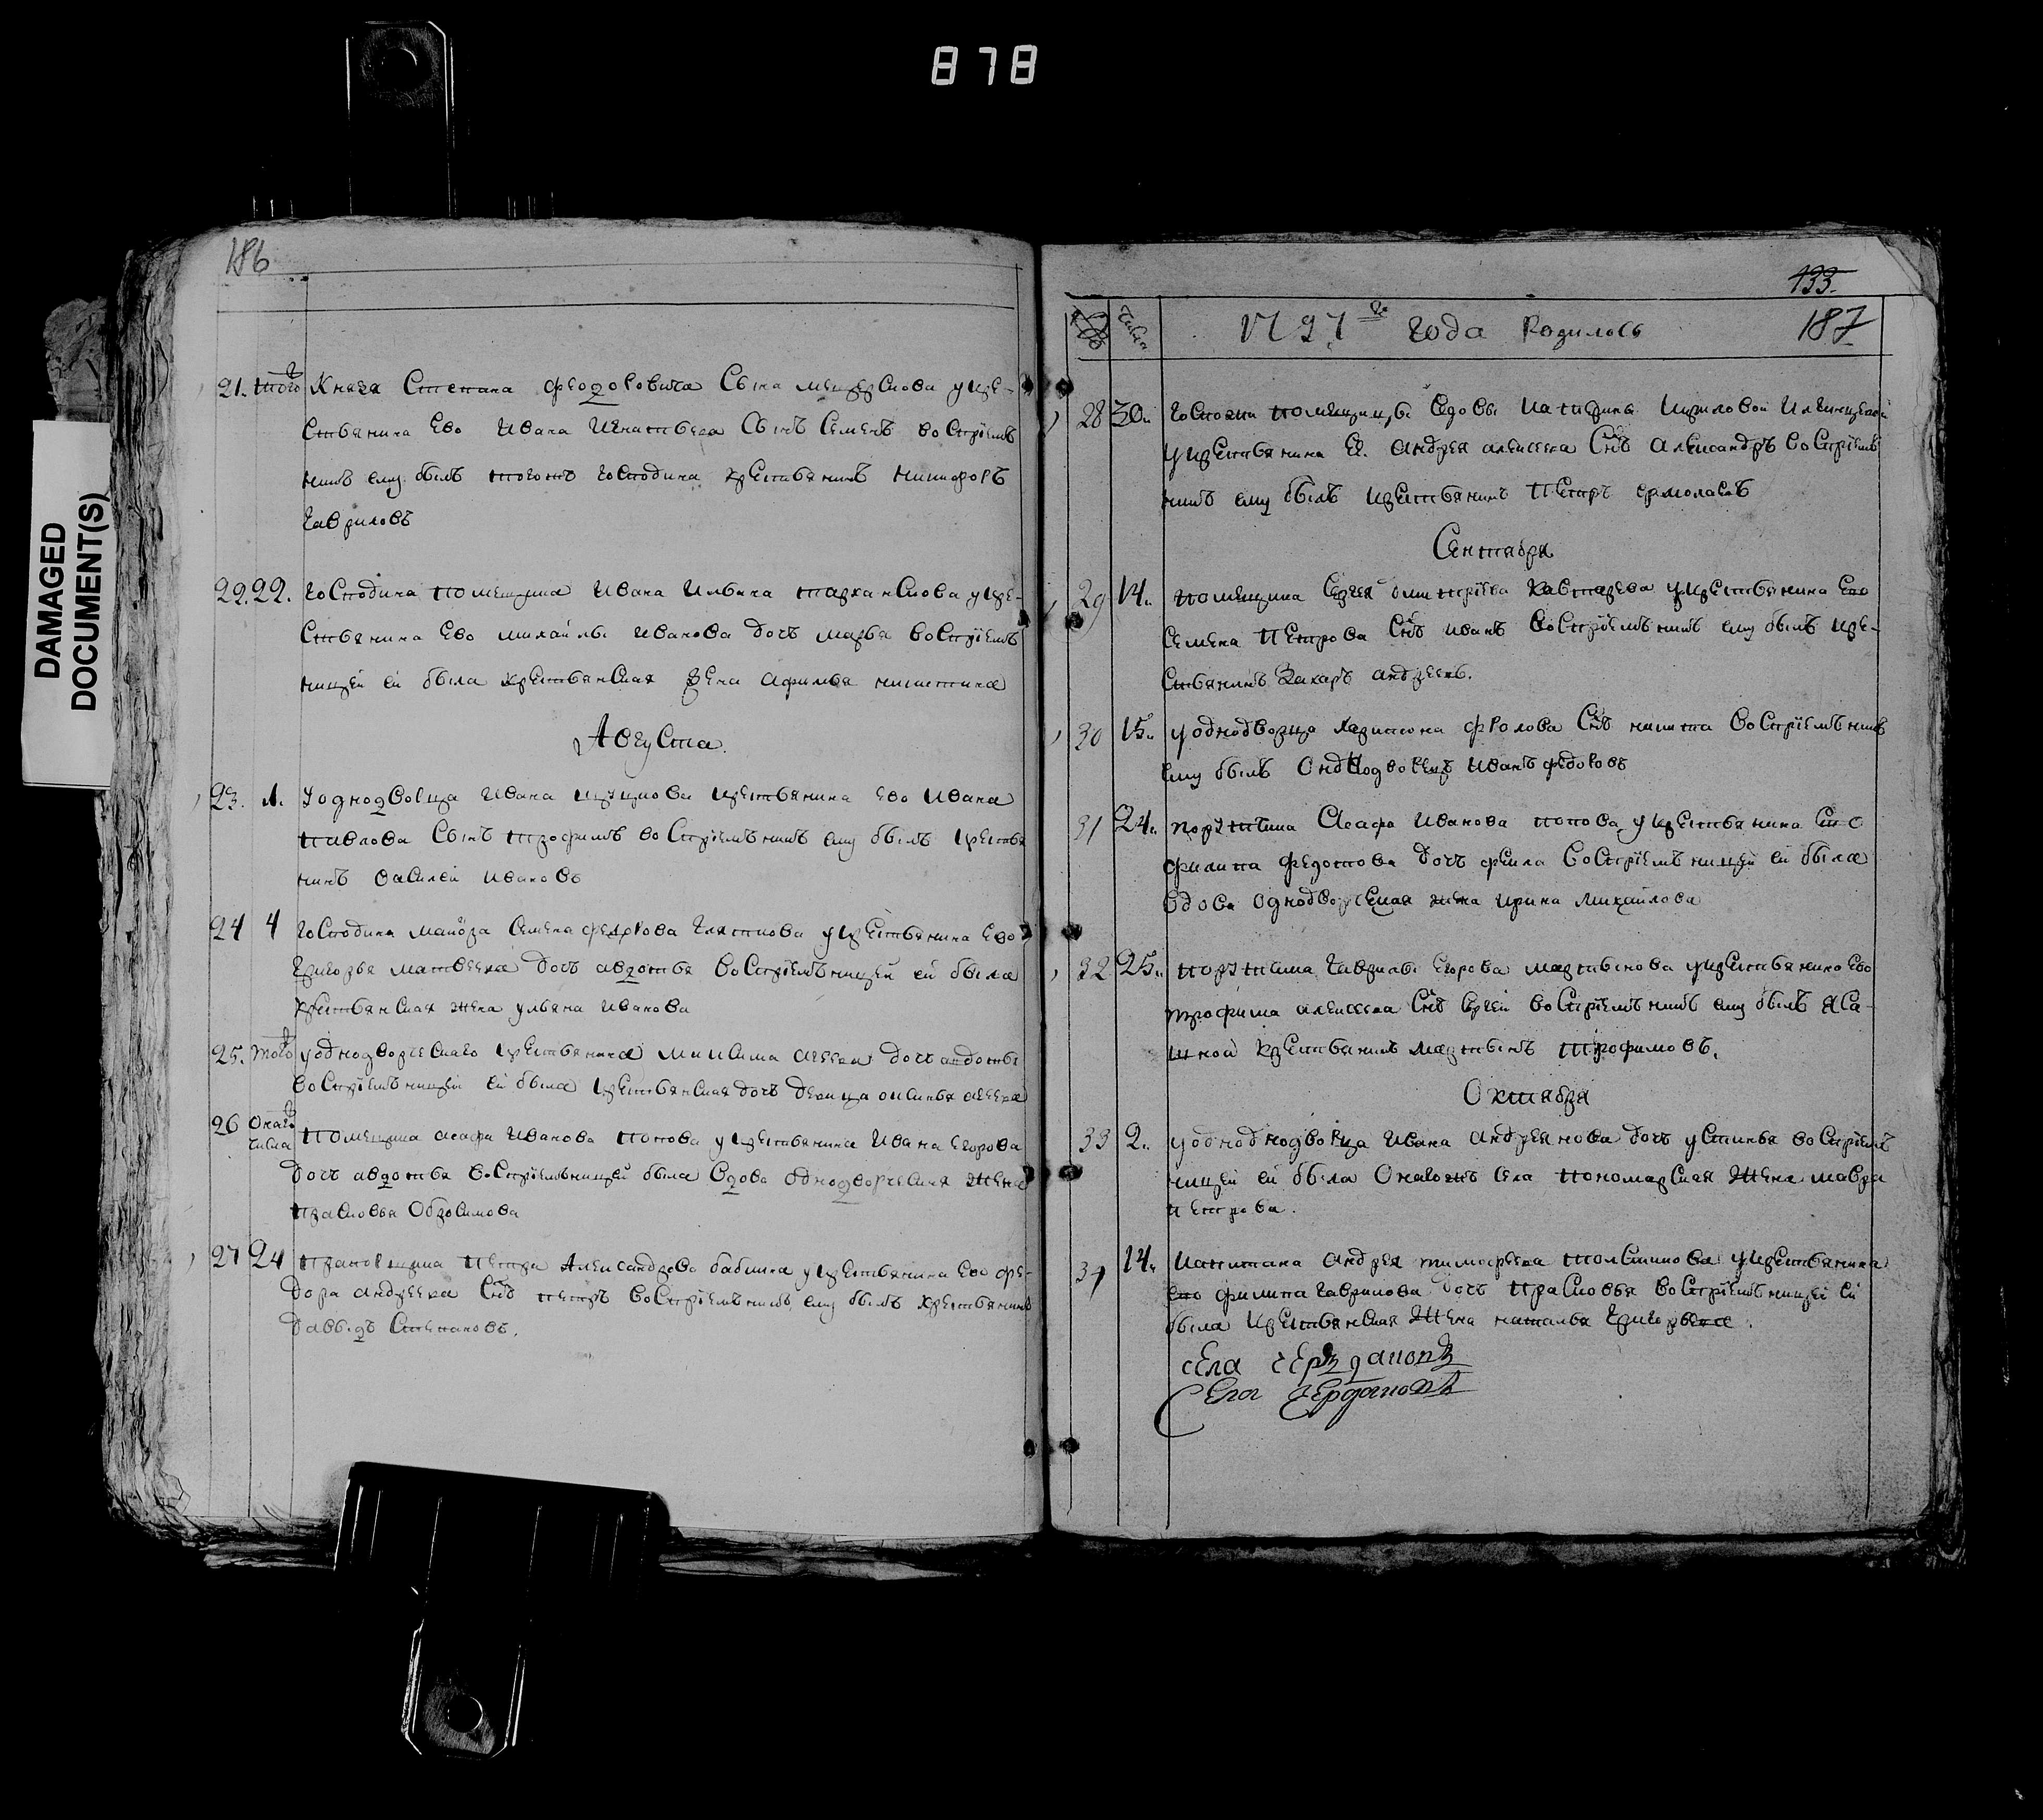 878
DAMAGED
DOCUMENT(S)
186
21. того Князя Степана Феодоровича Сына мещерскова укре-
стьянина Ево Ивана Игнатьева Сынъ Семенъ воспріем
никъ ему былъ тогожъ господина крестьянинъ никифоръ
гавриловъ
22. 22. господина помещика Ивана Ильина укре-
стьянина Ево михайлы Иванова дочъ марья воспріем
ницей ей была крестьянская жена Афимья никитина
Августа.
23. 1. У однодворца Ивана крестьянина ево Ивана
павлова Сынъ трофимъ воспріемникъ ему былъ крестья
нинъ василей Ивановъ
24 4 господина маиора Семена укрестьянина Ево
григорья матвеева дочъ авдотья воспріемницей ей была
крестьянская жена ульяна Иванова
25. того уоднодворческаго крестьянина максима дочъ
воспріемницей ей была крестьянская дочъ девица
26 онаго числа помещика асафа Иванова попова укрестьянина Ивана Егорова
дочъ авдотья воспріемницей была вдова однодворческая жена
прасковья
27 24 прапорщика петра Александрова бабина укрестьянина Ево фе-
дора андреева Снъ петръ воспріемникъ ему былъ крестьянинъ
давыдъ Степановъ.
133.
числа 1797 го года Родилось 187
28 30. госпожи помещицы вдовы
укрестьянина Ея андрея алексеева Снъ Александръ воспріем
никъ ему былъ крестьянинъ петръ ермолаевъ
Сентября
29 14. помещика Сергея дмитріева укрестьянина Ево
Семена петрова Снъ иванъ воспріемникъ ему былъ кре-
стьянинъ Захаръ андреевъ.
30 15. уоднодворца харитона фролова Снъ никита воспріемникъ
ему былъ Иванъ федоровъ
31 24. порутчика Асафа Иванова попова укрестьянина Ево
филипа федотова дочъ фекла воспріемницей ей была
вдова однодворческая жена ирина михайлова
32 25. порутчика гаврилы Егорова мартынова укрестьянина Ево
трофима алексеева Снъ Сергей воспріемникъ ему былъ
крестьянинъ мартынъ трофимовъ.
Октября
33 2. Ивана дочъ устинья воспріем
ницей ей была Онагожъ села пономарская жена мавра
петрова.
34 14. капитана андрея тимофеева толстикова укрестьянина
Ево филипа гаврилова дочъ прасковья воспріемницей ей
была крестьянская жена наталья григорьева.
села
Села